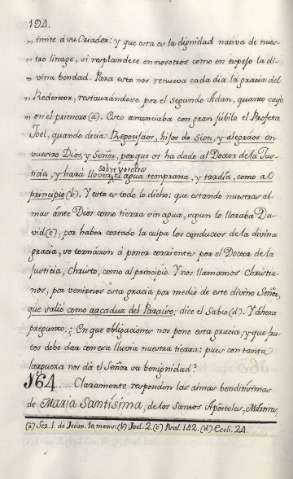 194.
imite á su Criador: y que esta es la dignidad nativa de nues-
tro linage, si resplandece en nosotros como en espejo la di-
vina bondad. Para esto nos renueva cada dia la gracia del
Redentor, restaurandose por el Segundo Adan, quanto cayó
en el primero (a). Esto anunciaba con gran jubilo el Profeta
Joel, quando decia: Regocijados, hijos de Sion, y alegraos en
vuestro Dios y Señor, porque os ha dado al Doctor de la Jus-
ticia, y hará llover sobre vosotros el agua temprana, y tardía, como al
principio (b). Y esta es todo lo dicho: que estando nuestras al-
mas ante Dios como tierra sin agua, segun lo lloraba Da-
vid (c), por haber cortado la culpa los conductos de la divina
gracia, se tornáron á poner corrientes por el Doctor de la
Justicia, Christo, como al principio. Y nos llamamos Christia-
nos, por venirnos esta gracia por medio de este divino Señor,
que salió como arcaduz del Paraiso; dice el Sabio (d). Y ahora
pregunto; ¿En que obligaciones nos pone esta gracia, y que fru-
tos debe dar con esta lluvia nuestra tierra: pues con tanta
largueza nos dá el Señor su benignidad?
164. Claramente responden las almas benditisimas
de Maria Santísima, de los Santos Apóstoles, Mártires,
(a) Ser. 1. de Jeiun. 10 mens. (b) Joel. 2. (c) Psal. 142. (d) Eccli. 24.